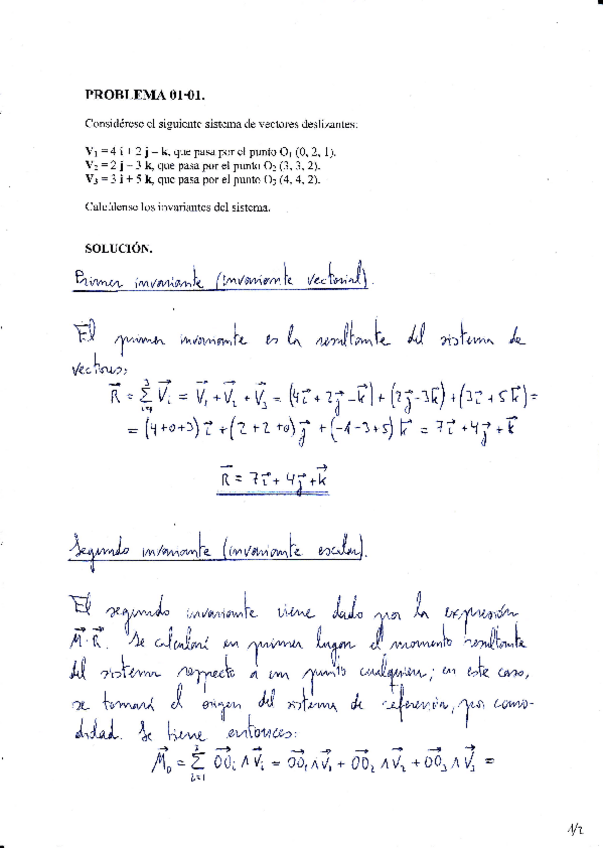 PROBLEMA 01-01.
Considérese el siguiente sistema de vectores deslizantes:
V₁ = 4 i + 2 j – k, que pasa por el punto O₁ (0, 2, 1).
V₂ = 2 j – 3 k, que pasa por el punto O₂ (3, 3, 2).
V₃ = 3 i + 5 k, que pasa por el punto O₃ (4, 4, 2).
Calcúlense los invariantes del sistema.
SOLUCIÓN.
Primer invariante (invariante vectorial).
El primer invariante es la resultante del sistema de
vectores:
R⃗ = Σ³ᵢ₌₁ V⃗ᵢ = V⃗₁ + V⃗₂ + V⃗₃ = (4i⃗ + 2j⃗ - k⃗) + (2j⃗ - 3k⃗) + (3i⃗ + 5k⃗) =
= (4+0+3) i⃗ + (2+2+0) j⃗ + (-1-3+5) k⃗ = 7i⃗ + 4j⃗ + k⃗
R⃗ = 7i⃗ + 4j⃗ + k⃗
Segundo invariante (invariante escalar).
El segundo invariante viene dado por la expresión
M⃗·R⃗. Se calculará en primer lugar el momento resultante
del sistema respecto a un punto cualquiera; en este caso,
se tomará el origen del sistema de referencia, por como-
didad. Se tiene entonces:
M⃗₀ = Σ³ᵢ₌₁ OO⃗ᵢ ∧ V⃗ᵢ = OO⃗₁ ∧ V⃗₁ + OO⃗₂ ∧ V⃗₂ + OO⃗₃ ∧ V⃗₃ =
1/2